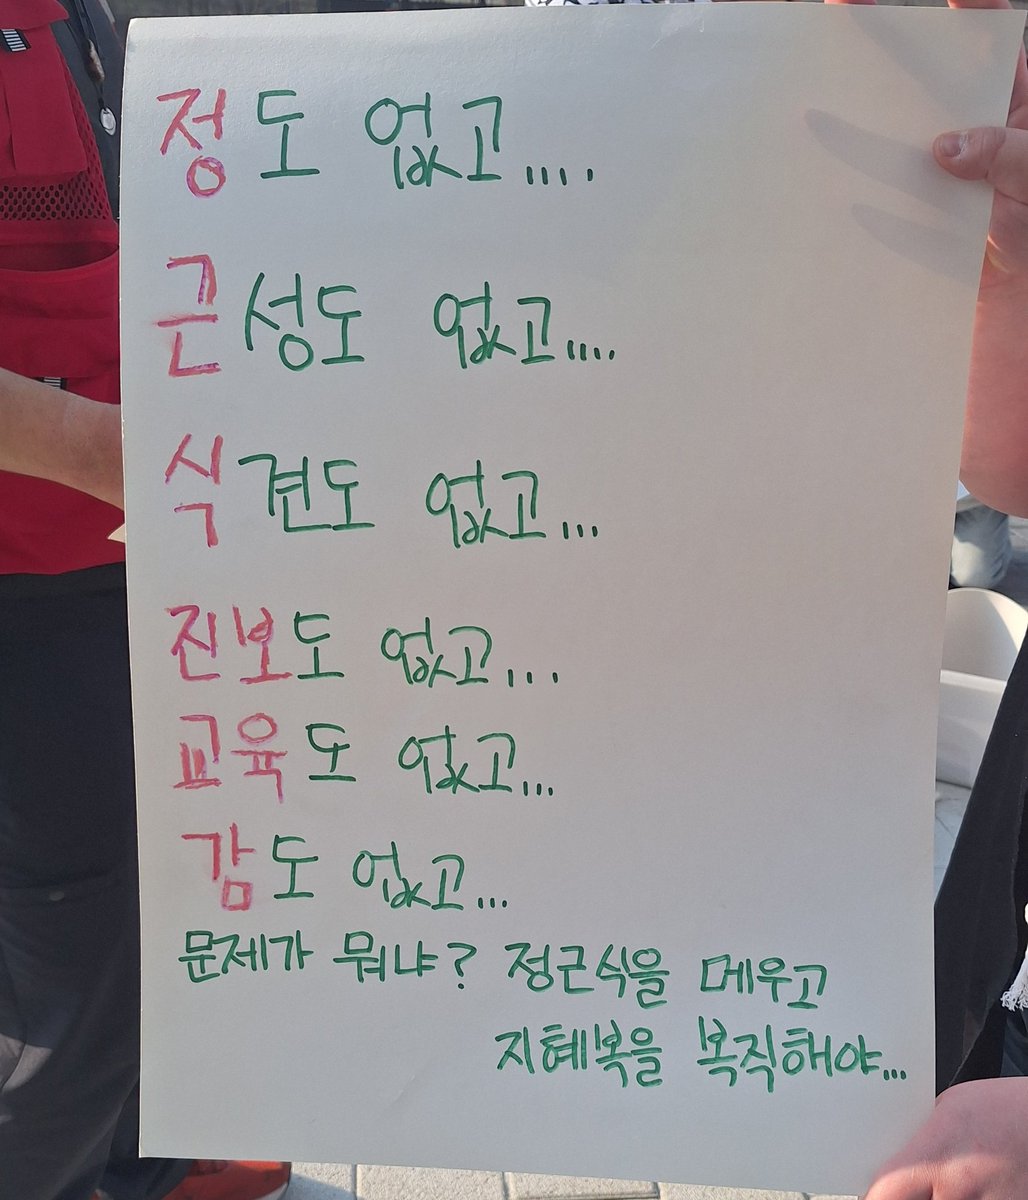 정도 없고....
근성도 없고....
식견도 없고...
진보도 없고...
교육도 없고...
감도 없고...
문제가 뭐냐? 정근식을 메우고
지혜복을 복직해야...